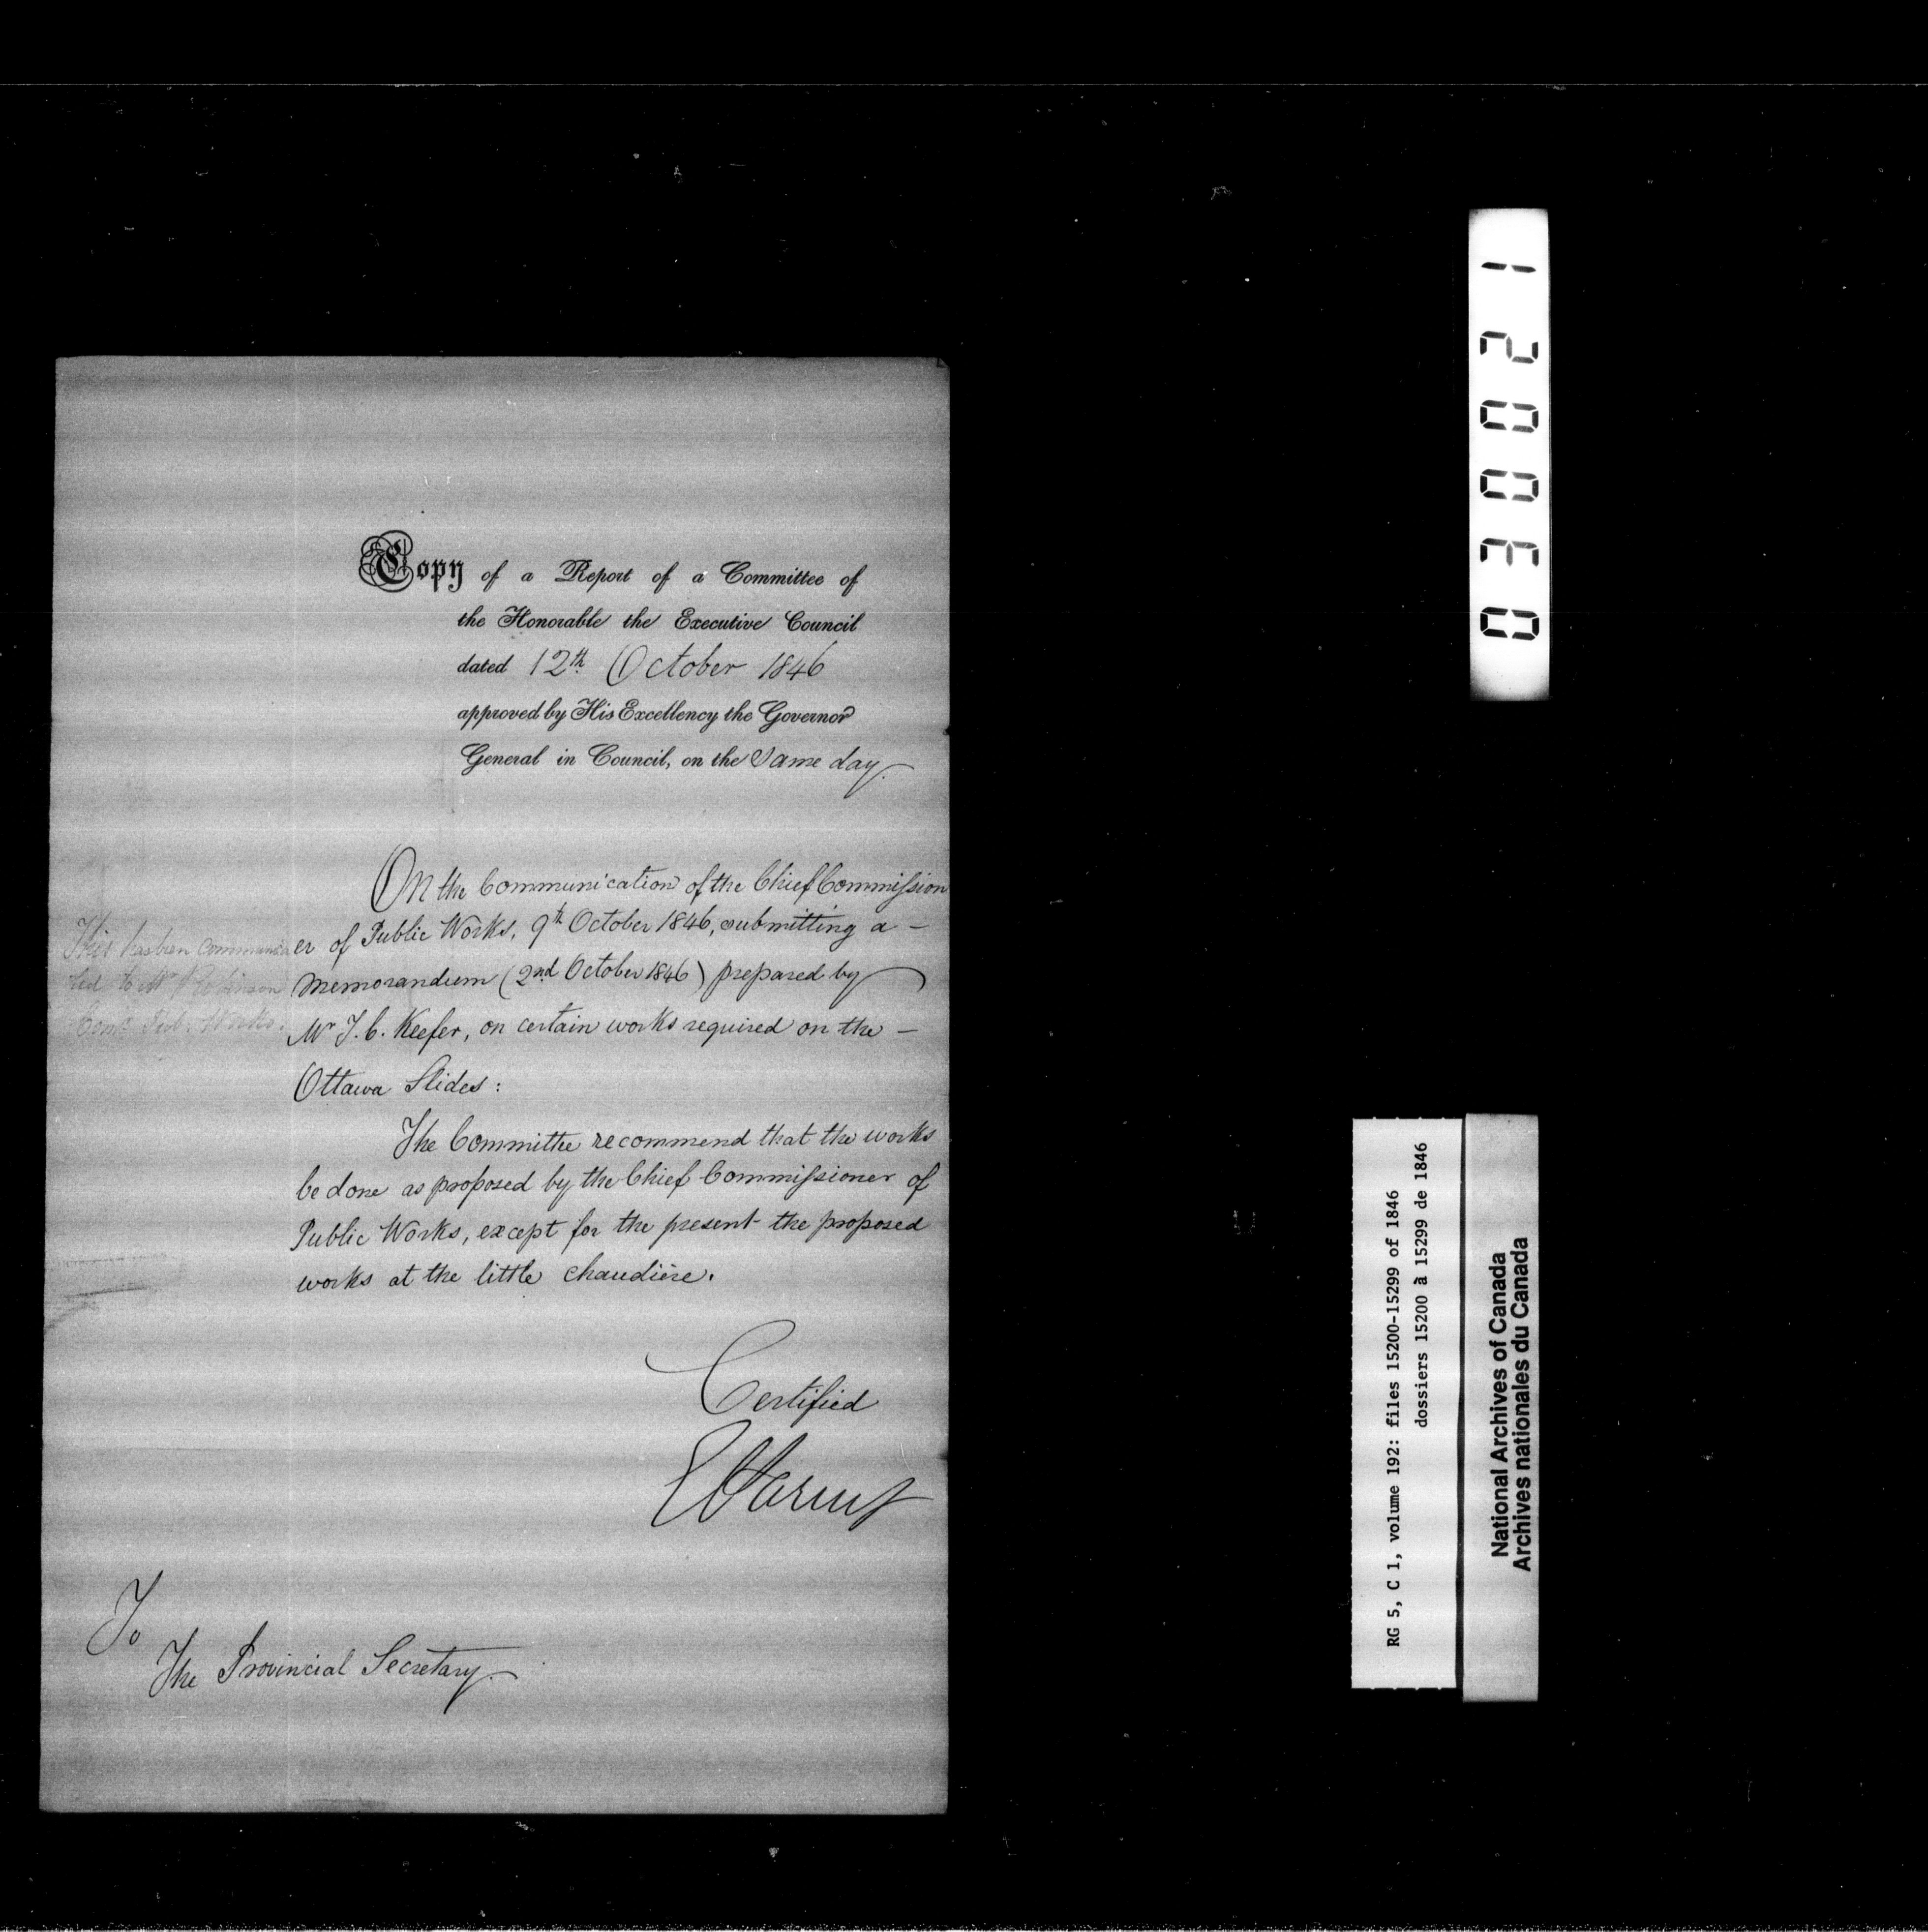 Copy of a Report of a Committee of
the Honorable the Executive Council
dated 12th October 1846
approved by His Excellency the Governor
General in Council, on the Same day.
On the Communication of the Chief Commission
er of Public Works, 9th October 1846, submitting a -
Memorandum (2nd October 1846) prepared by
Mr T. C. Keefer, on certain works required on the -
Ottawa Slides:
The Committee recommend that the works
be done as proposed by the Chief Commissioner of
Public Works, except for the present the proposed
works at the little chaudière.
This has been communica
ted to Mr Robinson
Comr Pub. Works.
Certified
E Parent
To
The Provincial Secretary.
030021
RG 5, C 1, volume 192: files 15200-15299 of 1846
dossiers 15200 à 15299 de 1846
National Archives of Canada
Archives nationales du Canada